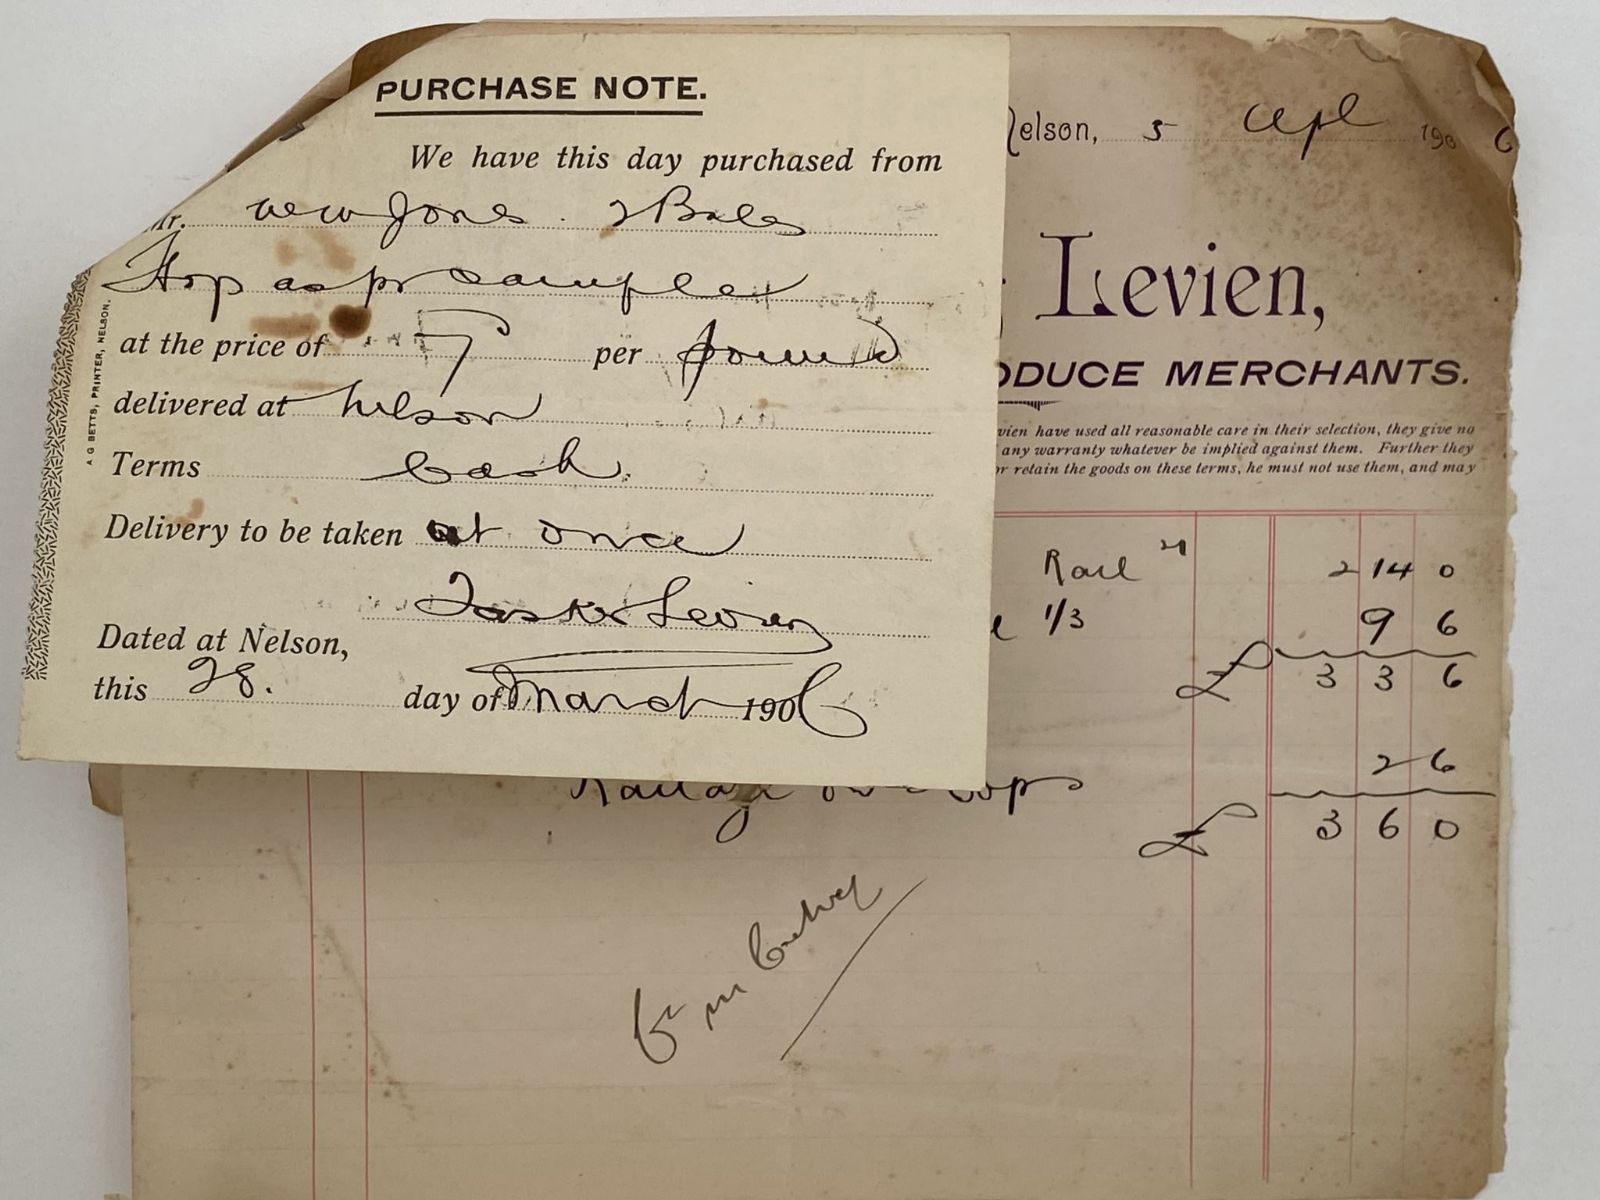 PURCHASE NOTE.
We have this day purchased from
Mr. Wew Jones. 2 Bales
Hop as pr sample
at the price of 7 per pound
delivered at Nelson
Terms Cash.
Delivery to be taken at once
Tasker Levien
Dated at Nelson,
this 28. day of March 1906
A G BETTS, PRINTER, NELSON.
Nelson, 5 Apl 1906
Levien,
ODUCE MERCHANTS.
vien have used all reasonable care in their selection, they give no
any warranty whatever be implied against them. Further they
or retain the goods on these terms, he must not use them, and may
Rail 2 14 0
1/3 9 6
£ 3 3 6
Railage on Hops 2 6
£ 3 6 0